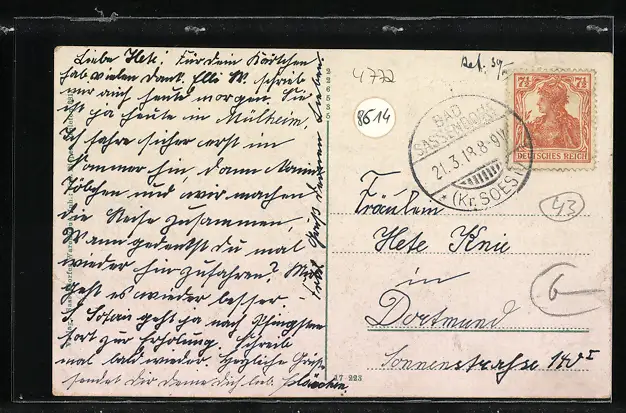 Liebe Hete! Für dein Kärtchen
hab vielen Dank. Elli W. schrieb
mir auch heute morgen. Sie
ist ja heute in Mülheim,
Ich fahre sicher erst im
Sommer hin, dann kann
und wir machen
die Reise zusammen,
Wann gedenkst du mal
wieder hin zufahren? Mir
geht es wieder besser. -
geht ja nach Pfingsten
fort zur Erholung. Schreib
mal bald wieder. Herzliche Grüße
sendet Dir deine Dich lieb.
4772
8614
BAD
SASSENDORF
21.3.18.8-9V
* (Kr. SOEST)
7½ 7½
DEUTSCHES REICH
43
6
Fräulein
Hete Knie
in
Dortmund
Sonnenstraße 140 I
17 223